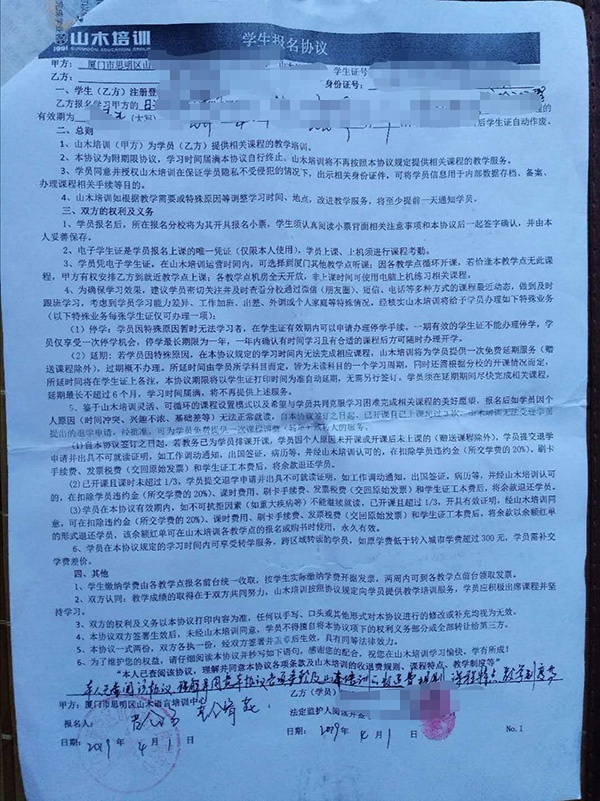 山木培训
1991 SUNMOON EDUCATION GROUP
学生报名协议
甲方：厦门市思明区山
学生证号
乙方：
身份证号：
一、学生（乙方）注册登
乙方报名学习甲方的
程的
有效期为
后学生证自动作废。
二、总则
1、山木培训（甲方）为学员（乙方）提供相关课程的教学培训。
2、本协议为附期限协议，学习时间届满本协议自行终止。山木培训将不再按照本协议规定提供相关课程的教学服务。
3、学员同意并授权山木培训在保证学员隐私不受侵犯的情况下，出示相关身份证件，可将学员信息用于内部数据存档、备案、
办理课程相关手续等目的。
4、山木培训如根据教学需要或特殊原因等调整学习时间、地点，改进教学服务，将至少提前一天通知学员。
三、双方的权利及义务
1、学员报名后，所在报名分校将为其开具报名小票，学生须认真阅读小票背面相关注意事项和本协议后一起签字确认，并由本
人妥善保存。
2、电子学生证是学员报名上课的唯一凭证（仅限本人使用），学员上课、上机须进行课程考勤。
3、学员凭电子学生证，在山木培训运营时间内，可选择到厦门其他教学点听课；因各教学点循环开课，若恰逢本教学点无此课
程，甲方有权安排乙方到就近教学点上课；各教学点机房全天开放，非上课时间可使用电脑上机练习相关课程。
4、为确保学习效果，建议学员密切关注并及时查看分校通过微信（朋友圈）、短信、电话等多种方式的课程最近动态，做到及时
跟班学习，考虑到学员学习能力差异、工作加班、出差、外调或个人家庭等特殊情况，经核实山木培训将给予学员办理如下特殊业务
（以下特殊业务每张学生证仅可办理一项）：
（1）停学：学员因特殊原因暂时无法学习者，在学生证有效期内可以申请办理停学手续，一期有效的学生证不能办理停学，学
员仅享受一次停学机会，停学最长期限为一年，一年内确认有时间学习且有合适的课程后方可随时办理开学。
（2）延期：若学员因特殊原因，在本协议规定的学习时间内无法完成相应课程，山木培训将为学员提供一次免费延期服务（赠
送课程除外），过期概不办理。所延时间由学员所学科目而定，皆为未读科目的一个学习周期，同时还需根据分校的开课情况而定，
所延时间将在学生证上备注，本协议期限将以学生证打印时间为准自动延期，无需另行签订。学员须在延期期间尽快完成相关课程，
延期最长不超过 6 个月，学习时间届满，将不再提供上述服务。
5、鉴于山木培训灵活、可循环的课程设置模式以及希望与学员共同克服学习困难完成相关课程的美好愿望，报名后如学员因个
人原因（时间冲突、兴趣不浓、基础差等）无法正常就读，自本协议签订之日起，已开课且已上课超过3次，山木培训无法受理学员
提出的退学申请，经批准，可为学员免费提供一次课程调整（转课）或转人的服务。
(1)自本协议签订之日起，若教务已为学员排课开课，学员因个人原因未开课或开课后未上课的（赠送课程除外），学员提交退学
申请并出具不可就读证明，如工作调动通知，出国签证，病历等，并经山木培训认可的，在扣除学员违约金（所交学费的 20%）、刷卡
手续费、发票税费（交回原始发票）和学生证工本费后，将余款退还学员。
(2)已开课且课时未超过 1/3，学员提交退学申请并出具不可就读证明，如工作调动通知，出国签证，病历等，并经山木培训认可
的，在扣除学员违约金（所交学费的 20%）、课时费用、刷卡手续费、发票税费（交回原始发票）和学生证工本费后，将余款退还学员。
(3)学员在本协议有效期内，如不可抗拒因素（如重大疾病等）不能继续就读，已开课且超过 1/3，开具有效证明，经山木培训同
意，可在扣除违约金（所交学费的 20%）、课时费用、刷卡手续费、发票税费（交回原始发票）和学生证工本费后，将余款以余额红单
的形式退还学员，该余额红单可在山木培训各教学点的报名或购书时使用，永久有效。
6、学员在本协议规定的学习时间内可享受转学服务，跨区域转读的学员，如原学费低于转入城市学费超过 300 元，学员需补交
学费差价。
四、其他
1、学生缴纳学费由各教学点报名前台统一收取，按学生实际缴纳学费开据发票，两周内可到各教学点前台领取发票。
2、双方认同：教学成绩的取得在于双方共同努力，山木培训按照协议规定向学员提供教学培训服务，学员应积极出席课程并坚
持学习。
3、双方的权利及义务以本协议打印内容为准，任何以手写、口头或其他形式对本协议进行的修改或补充均视为无效。
4、本协议双方签署生效后，未经山木培训同意，学员不得擅自将本协议项下的权利义务部分或全部转让给第三方。
5、本协议一式两份，双方各执一份，经双方签署并盖章后生效，具有同等法律效力。
6、为了维护您的权益，请仔细阅读本协议并抄写如下语句，感谢您的配合，祝您在山木培训学习愉快，学有所成！
"本人已查阅该协议，理解并同意本协议各项条款及山木培训的收退费规则、课程特点、教学制度等"
本人已查阅该协议，理解并同意本协议各项条款及山木培训的收退费规则、课程特点、教学制度等
甲方：厦门市思明区山木语言培训中心
乙方（学员）
报名人：
法定监护人阅读并签
日期：2019 年 4 月 1 日
日期：2019 年 4 月 1 日
No.1